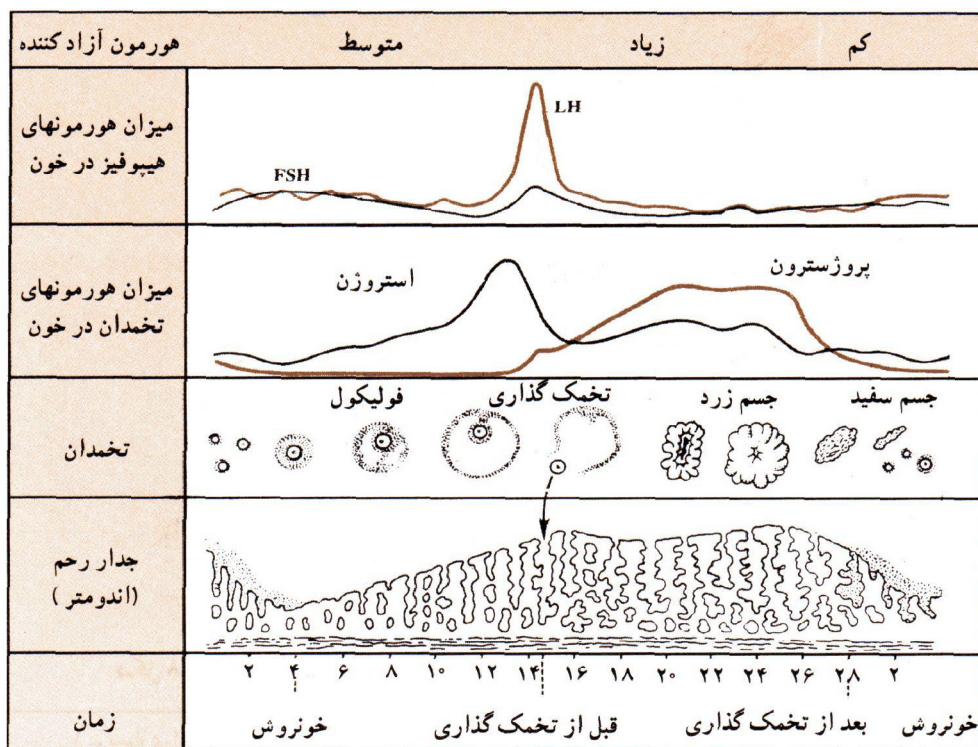 هورمون آزاد کننده
متوسط
زیاد
کم
میزان هورمونهای
هیپوفیز در خون
FSH
LH
میزان هورمونهای
تخمدان در خون
استروژن
پروژسترون
تخمدان
فولیکول
تخمک گذاری
جسم زرد
جسم سفید
جدار رحم
(اندومتر)
زمان
۲ ۴ ۶ ۸ ۱۰ ۱۲ ۱۴ ۱۶ ۱۸ ۲۰ ۲۲ ۲۴ ۲۶ ۲۸ ۲
خونروش
قبل از تخمک گذاری
بعد از تخمک گذاری
خونروش